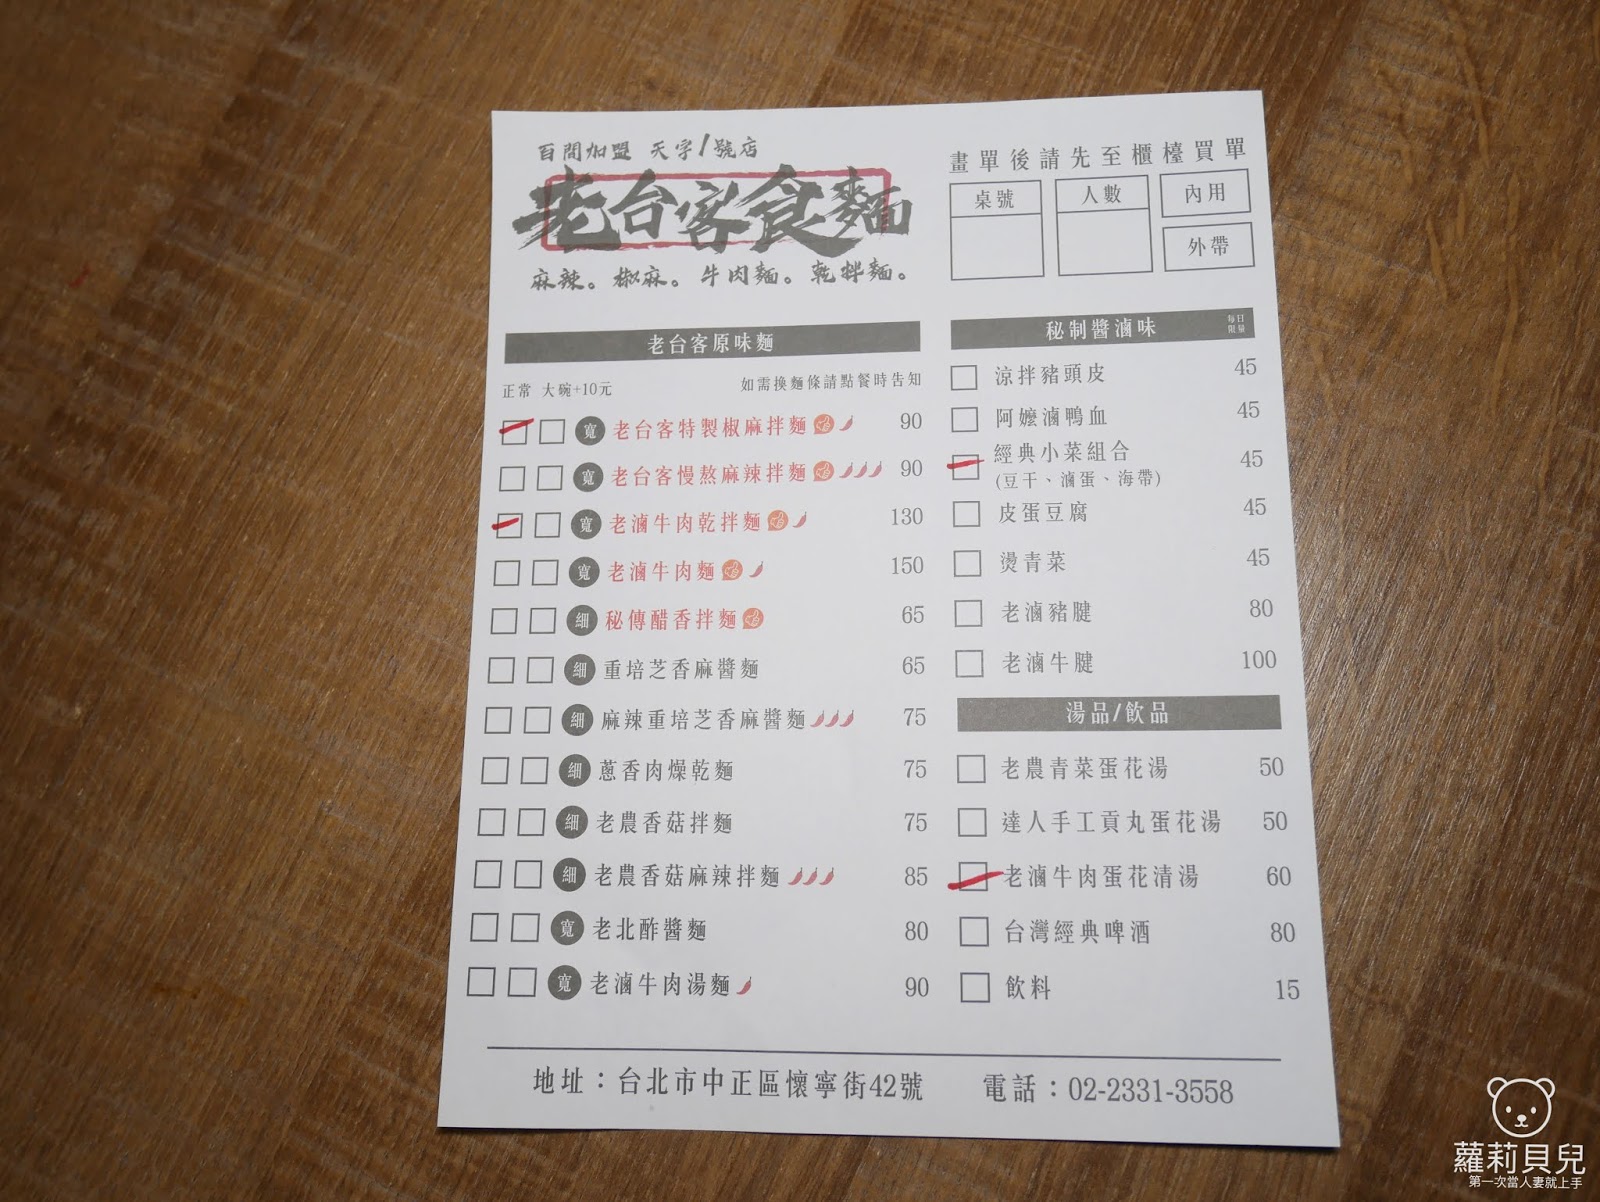 百間加盟 天字1號店
老台客食麵
麻辣。椒麻。牛肉麵。乾拌麵。
畫單後請先至櫃檯買單
桌號 人數 內用
外帶
老台客原味麵
正常 大碗+10元 如需換麵條請點餐時告知
寬 老台客特製椒麻拌麵 90
寬 老台客慢熬麻辣拌麵 90
寬 老滷牛肉乾拌麵 130
寬 老滷牛肉麵 150
細 秘傳醋香拌麵 65
細 重培芝香麻醬麵 65
細 麻辣重培芝香麻醬麵 75
細 蔥香肉燥乾麵 75
細 老農香菇拌麵 75
細 老農香菇麻辣拌麵 85
寬 老北酢醬麵 80
寬 老滷牛肉湯麵 90
秘制醬滷味 每日限量
涼拌豬頭皮 45
阿嬤滷鴨血 45
經典小菜組合 45
(豆干、滷蛋、海帶)
皮蛋豆腐 45
燙青菜 45
老滷豬腱 80
老滷牛腱 100
湯品/飲品
老農青菜蛋花湯 50
達人手工貢丸蛋花湯 50
老滷牛肉蛋花清湯 60
台灣經典啤酒 80
飲料 15
地址：台北市中正區懷寧街42號 電話：02-2331-3558
蘿莉貝兒
第一次當人妻就上手